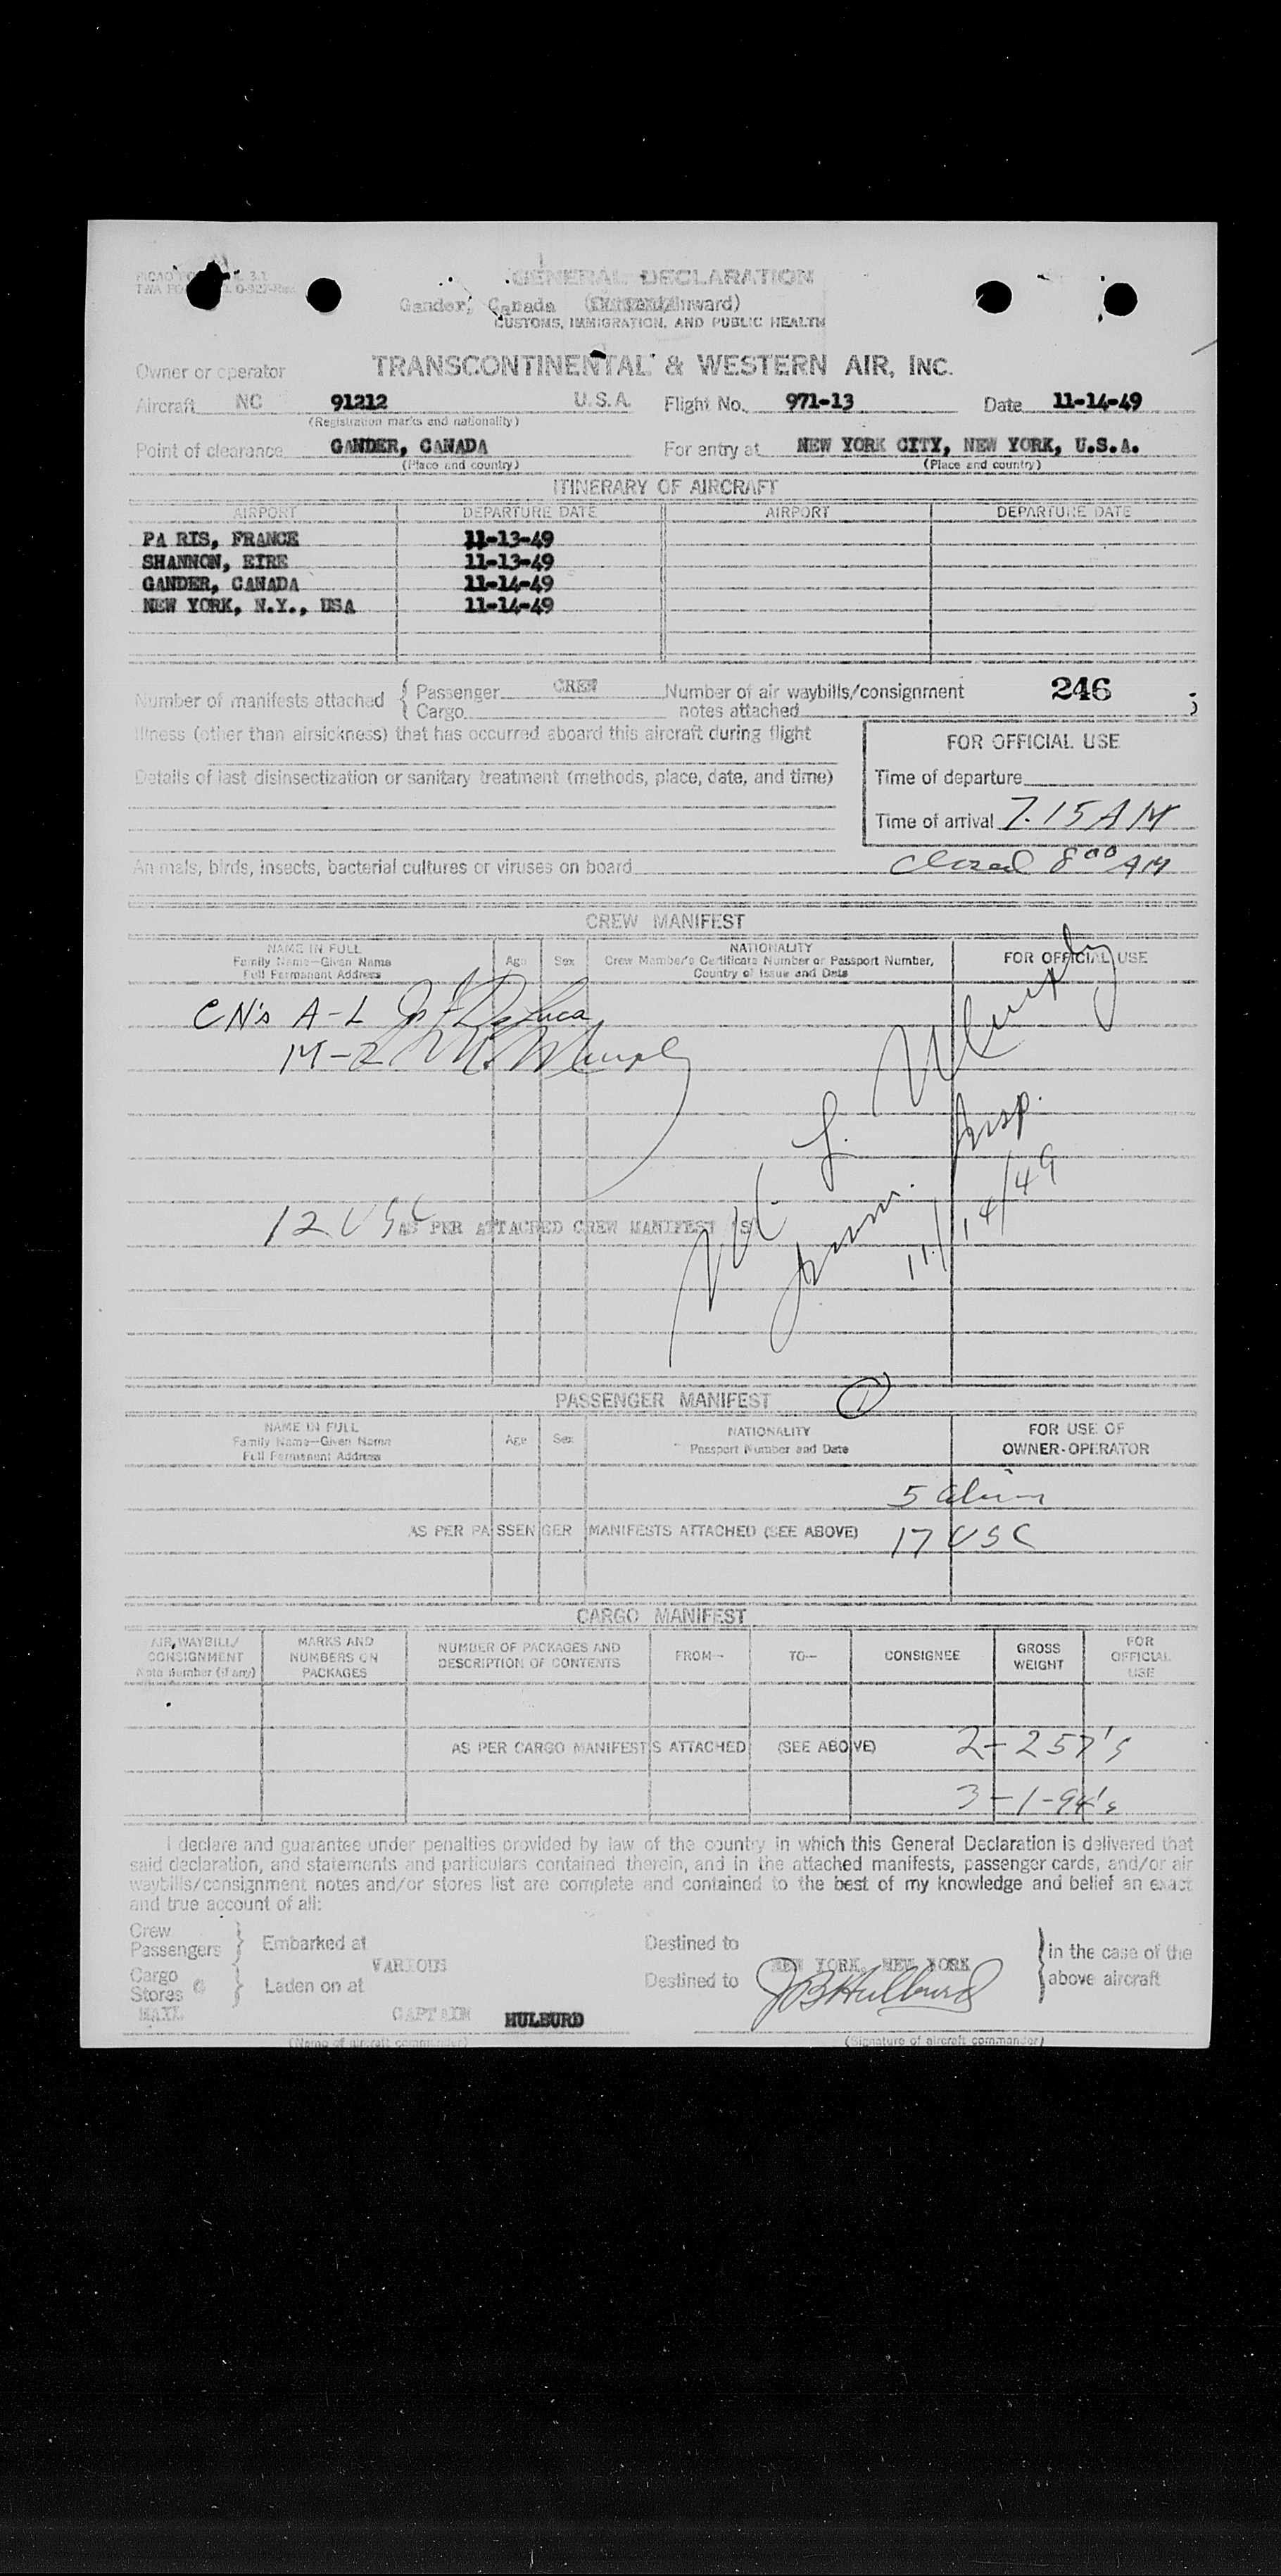 GENERAL DECLARATION
Gander, Canada (Outward/Inward)
CUSTOMS, IMMIGRATION, AND PUBLIC HEALTH
Owner or operator TRANSCONTINENTAL & WESTERN AIR, INC.
Aircraft NC 91212 U.S.A. Flight No. 971-13 Date 11-14-49
(Registration marks and nationality)
Point of clearance GANDER, CANADA For entry at NEW YORK CITY, NEW YORK, U.S.A.
(Place and country) (Place and country)
ITINERARY OF AIRCRAFT
AIRPORT DEPARTURE DATE AIRPORT DEPARTURE DATE
PA RIS, FRANCE 11-13-49
SHANNON, EIRE 11-13-49
GANDER, CANADA 11-14-49
NEW YORK, N.Y., USA 11-14-49
Number of manifests attached { Passenger CREW Number of air waybills/consignment 246
Cargo notes attached
Illness (other than airsickness) that has occurred aboard this aircraft during flight
FOR OFFICIAL USE
Details of last disinsectization or sanitary treatment (methods, place, date, and time)
Time of departure
Time of arrival 7.15 AM
Animals, birds, insects, bacterial cultures or viruses on board closed 8 00 AM
CREW MANIFEST
NAME IN FULL
Family Name—Given Name
Full Permanent Address
Age Sex
NATIONALITY
Crew Member's Certificate Number or Passport Number,
Country of Issue and Date
FOR OFFICIAL USE
CN's A-L DeLuca
M-Z M. Murphy
12 USC AS PER ATTACHED CREW MANIFEST (S)
L. Murphy
Imm. Insp.
11/14/49
PASSENGER MANIFEST 1
NAME IN FULL
Family Name—Given Name
Full Permanent Address
Age Sex
NATIONALITY
Passport Number and Date
FOR USE OF
OWNER-OPERATOR
5 Alien
AS PER PASSENGER MANIFESTS ATTACHED (SEE ABOVE) 17 USC
CARGO MANIFEST
AIR WAYBILL/
CONSIGNMENT
Note Number (if any)
MARKS AND
NUMBERS ON
PACKAGES
NUMBER OF PACKAGES AND
DESCRIPTION OF CONTENTS
FROM— TO— CONSIGNEE
GROSS
WEIGHT
FOR
OFFICIAL
USE
AS PER CARGO MANIFESTS ATTACHED (SEE ABOVE) 2-257's
3-1-94's
I declare and guarantee under penalties provided by law of the country in which this General Declaration is delivered that
said declaration, and statements and particulars contained therein, and in the attached manifests, passenger cards, and/or air
waybills/consignment notes and/or stores list are complete and contained to the best of my knowledge and belief an exact
and true account of all:
Crew
Passengers } Embarked at Destined to } in the case of the
VARIOUS NEW YORK, NEW YORK
Cargo
Stores } Laden on at Destined to above aircraft
MAIL CAPTAIN HULBURD JB Hulburd
(Name of aircraft commander) (Signature of aircraft commander)